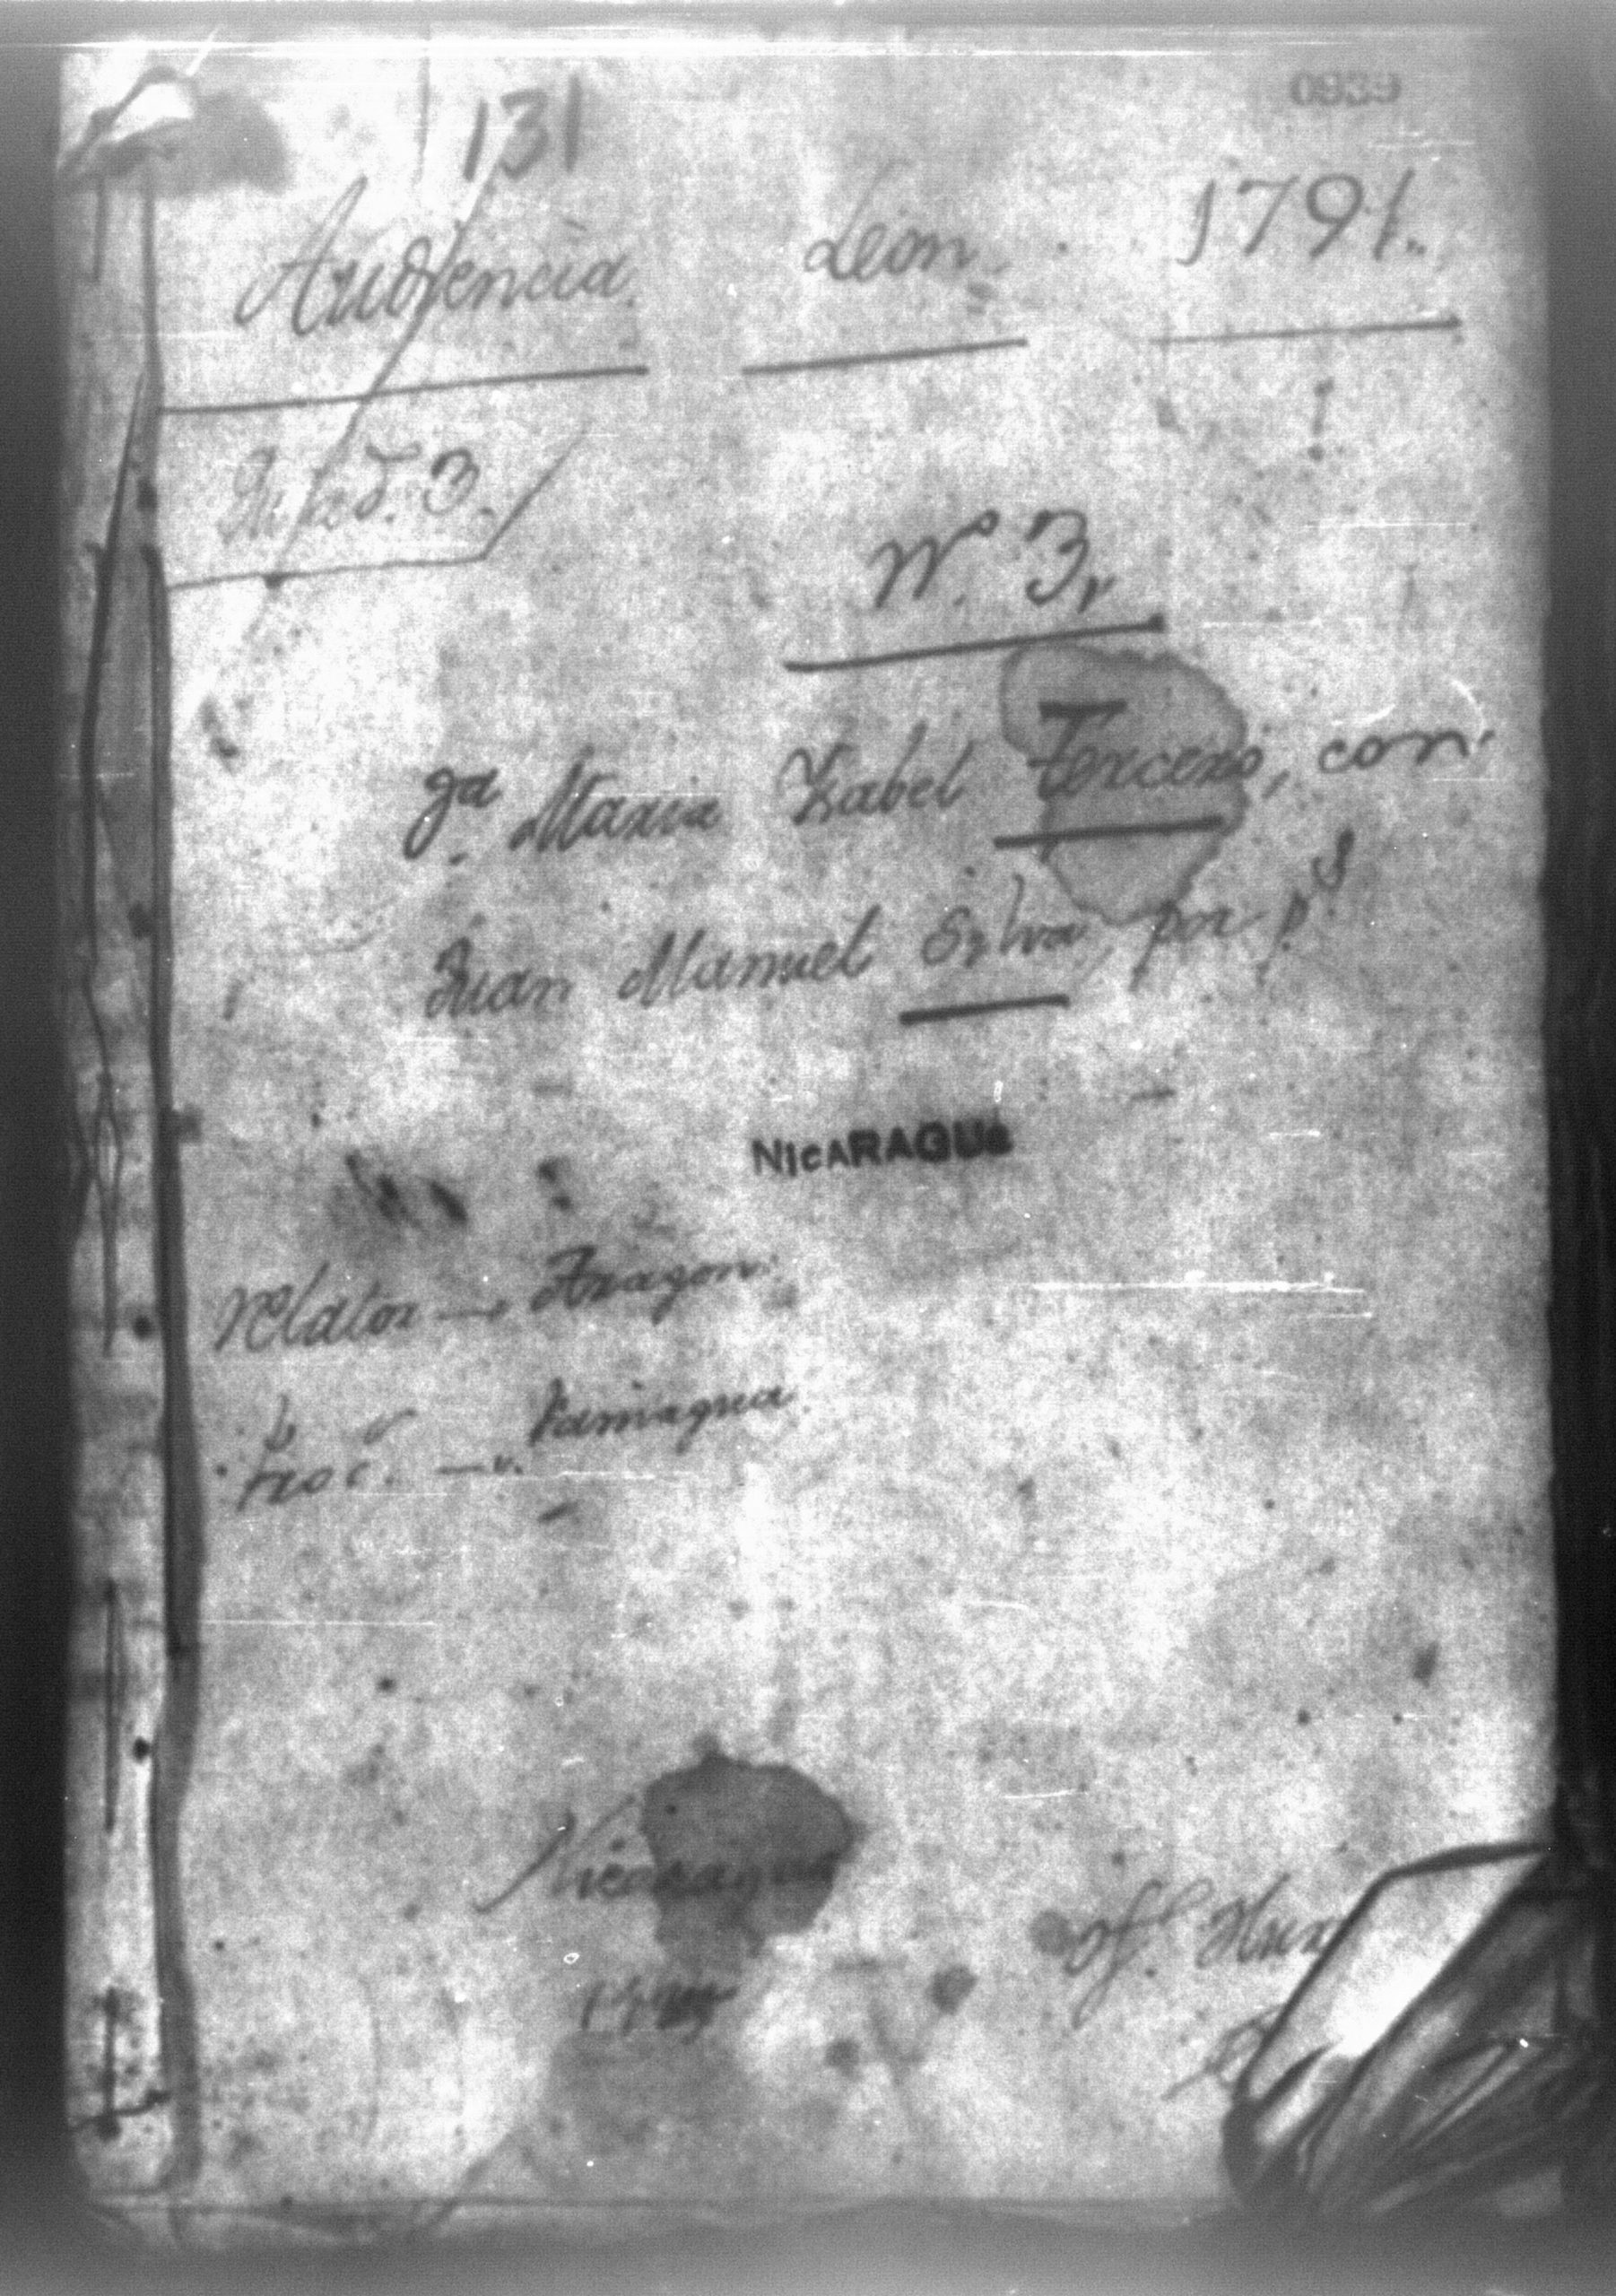 0939
131
Audiencia. Leon. 1791.
3.
N.º 3,
D.ª Maria Ysabel Tercero, con
Juan Manuel Sylva, por p.s
NICARAGUA
Relator — Aragon.
Proc. —
Nicaragua
Of.º